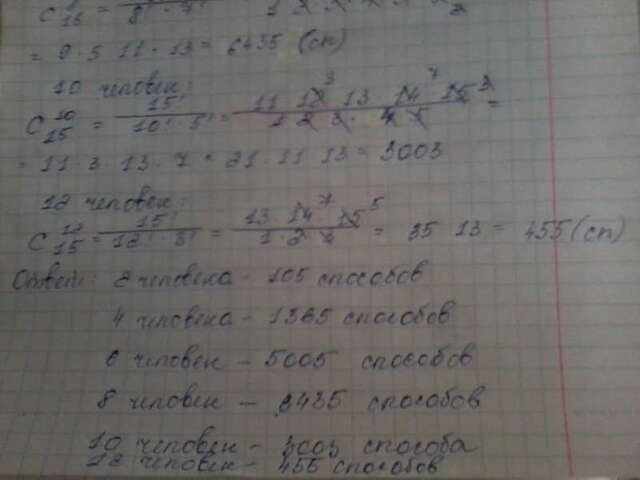 C 15 = 8! · 7!
= 9 · 5 11 · 13 = 6435 (сп)
10 человек:
C 10 15 = 15! / 10! · 5! = 11 12 3 13 14 7 15 3 / 1 2 3 · 4 5 =
= 11 · 3 · 13 · 7 = 21 · 11 13 = 3003
12 человек:
C 12 15 = 15! / 12! · 3! = 13 · 14 7 15 5 / 1 · 2 · 3 = 35 · 13 = 455 (сп)
Ответ: 2 человека - 105 способов
4 человека - 1365 способов
6 человек - 5005 способов
8 человек - 6435 способов
10 человек - 3003 способа
12 человек - 455 способов